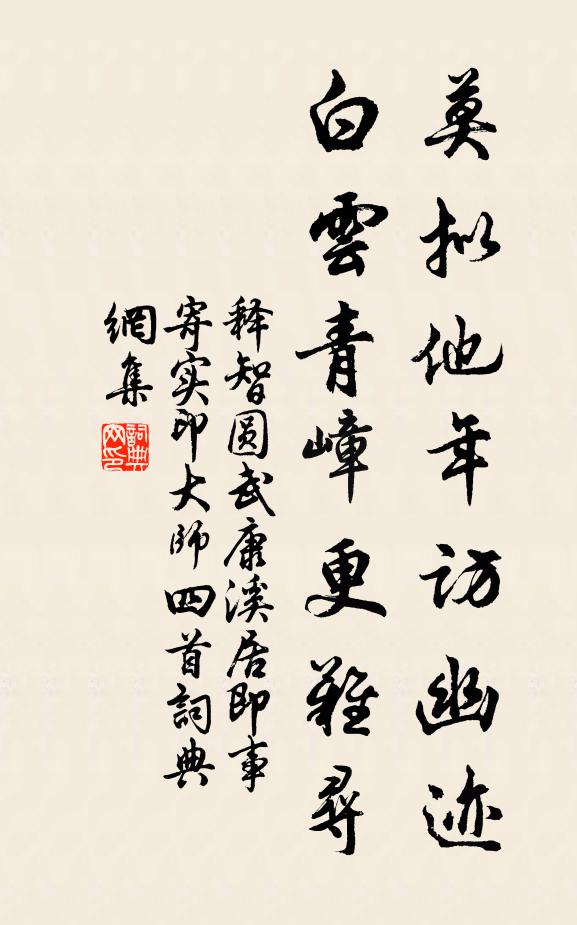 莫拟他年访幽迹
白雲青嶂更難尋
释智圆武康溪居即事
寄实印大师四首詞典
網集
詞典网印